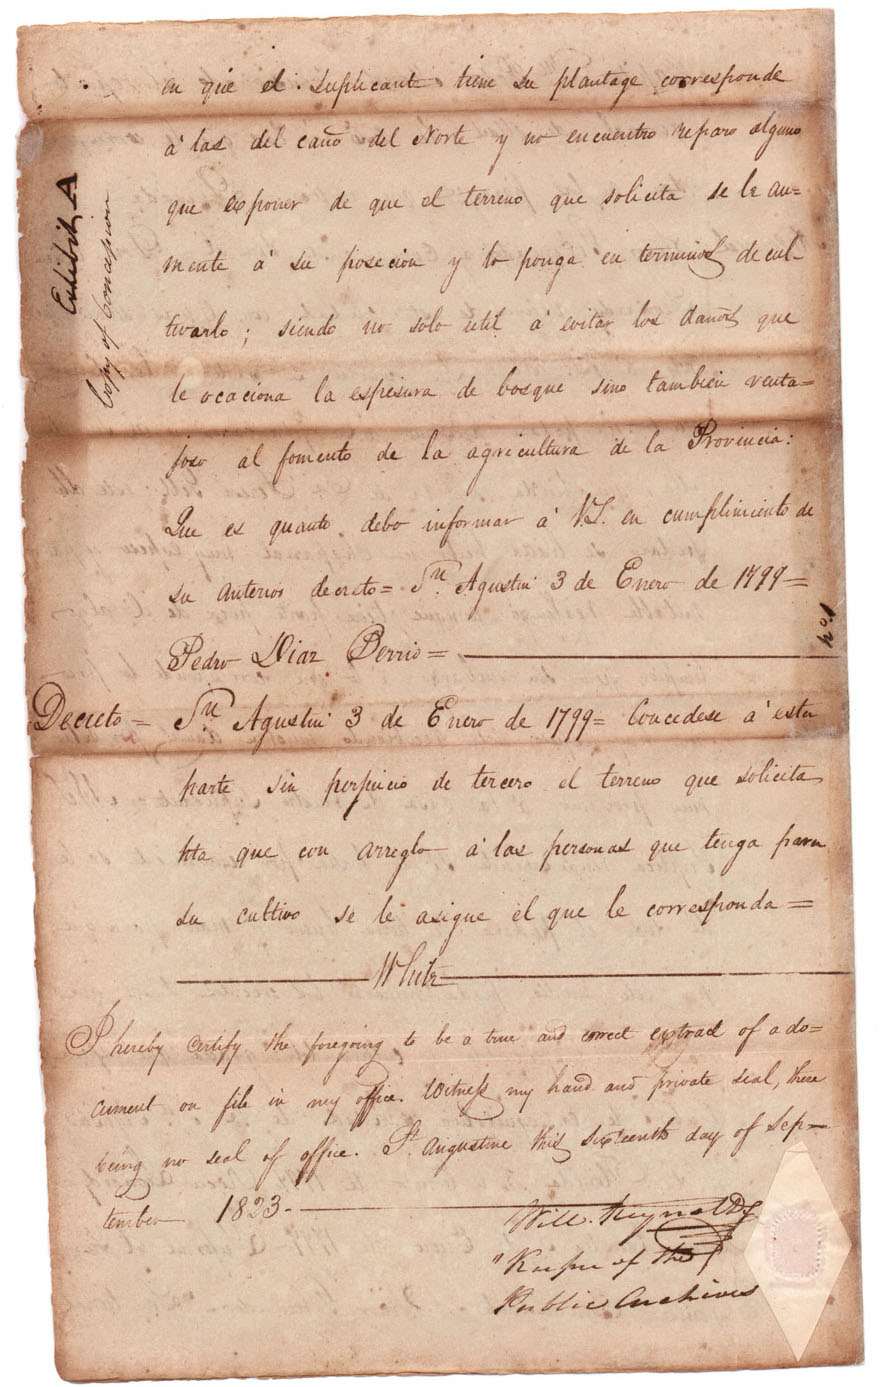 en que el suplicante tiene su plantage corresponde
á las del caño del Norte y no encuentro reparo alguno
que exponer de que el terreno que solicita se le au=
mente á su posecion y lo ponga en terminos de cul=
tivarlo; siendo no solo util á evitar los daños que
le ocaciona la espesura de bosque sino tambien venta=
joso al fomento de la agricultura de la Provincia:
Que es quanto debo informar á V.S. en cumplimiento de
su anterior decreto = Sn. Agustin 3 de Enero de 1799 =
Pedro Diaz Berrio =
Decreto = Sn Agustin 3 de Enero de 1799 = Concedese á esta
parte sin perjuicio de tercero el terreno que solicita
hta que con arreglo á las personas que tenga para
su cultivo se le asigue el que le corresponda =
White
I hereby certify the foregoing to be a true and correct extract of a do=
cument on file in my office. Witness my hand and private seal, there
being no seal of office. St. Augustine this sixteenth day of Sep=
tember 1823.
Will. Reynolds
"Keeper of the
Public Archives
Exhibit A
Copy of Concession
no. 1